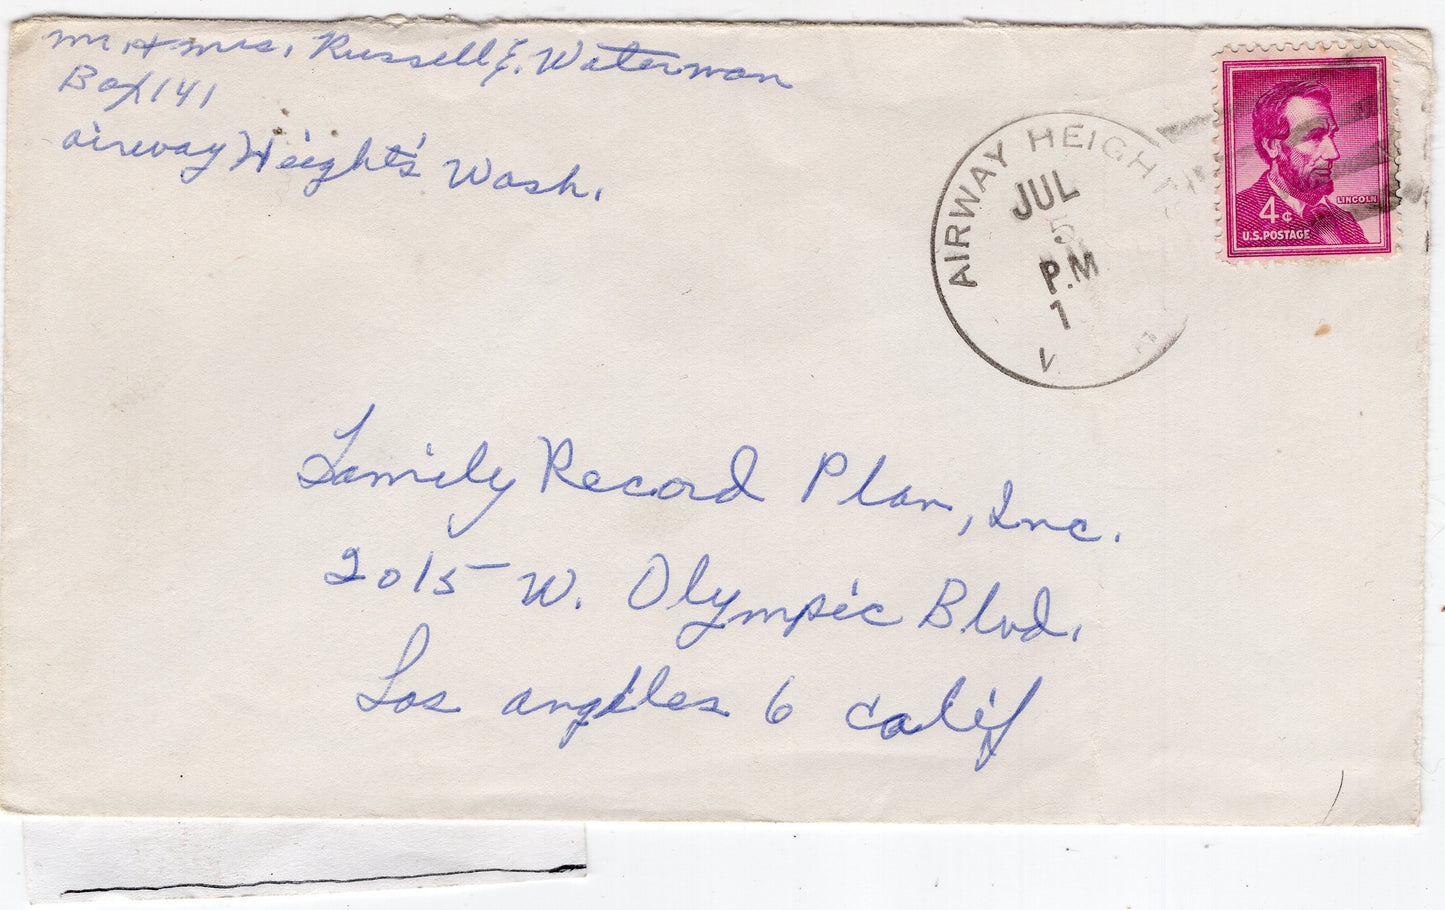 Mr. & Mrs. Russell E. Waterman
Box 141
Airway Height's Wash.
AIRWAY HEIGHT
JUL
5
P.M
1
LINCOLN
4¢
U.S. POSTAGE
Family Record Plan, Inc.
2015 W. Olympic Blvd.
Los Angeles 6 Calif